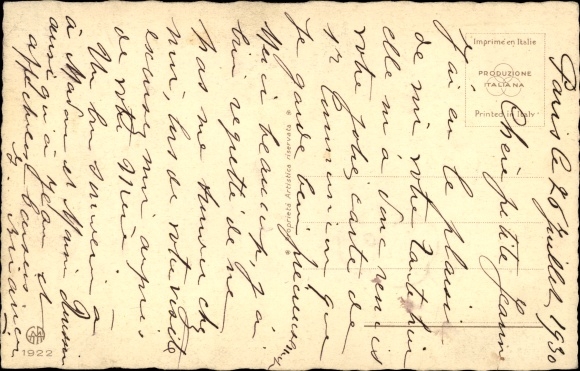 Paris le 26 Juillet 1930
Chère petite Jeanne
J'ai eu le plaisir
de voir votre tante hier
elle m'a donc remis
votre jolie carte de
1re Communion que
je garde bien précieusement
Merci beaucoup, j'ai
bien regretté de ne
pas me trouver chez
moi lors de votre visite
excusez moi auprès
de votre Mère
Un bon souvenir
à Madame et Mr
ainsi qu'à Jean et
affectueux baisers
Imprimé en Italie
PRODUZIONE
ITALIANA
Printed in Italy
Proprietà Artistica riservata
1922